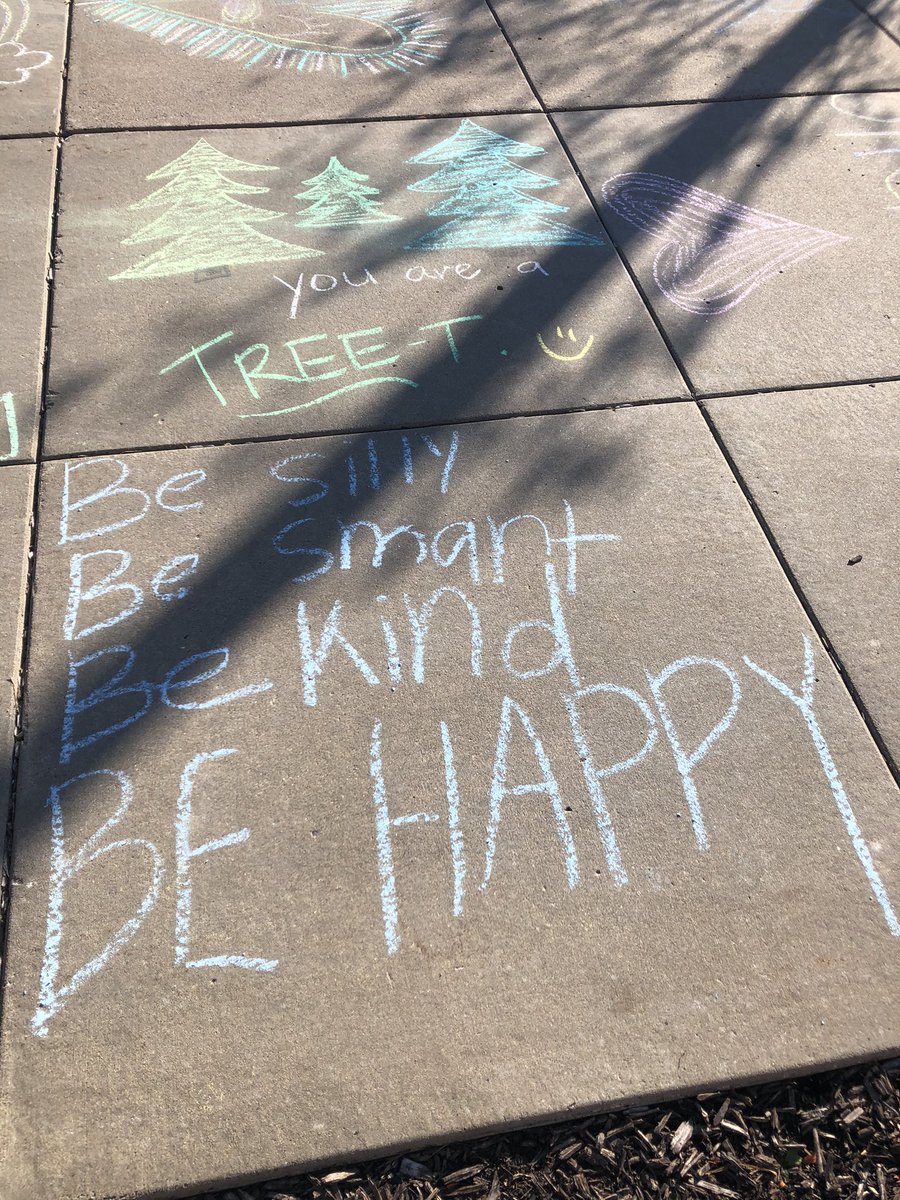 you are a
TREE-T.
Be silly
Be smart
Be kind
BE HAPPY